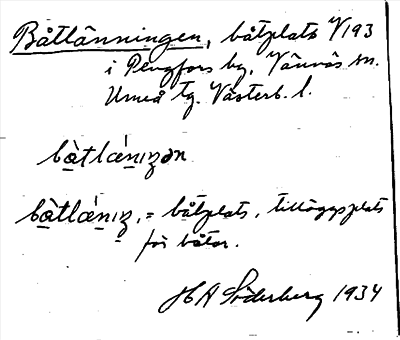 Båtlänningen, båtplats V193
i Pengfors by, Vännäs sn.
Umeå tg. Västerb. l.
bàtlæ̀nıŋən
bàtlæ̀nıŋ, = båtplats, tilläggsplats
för båtar.
H A Söderberg 1934